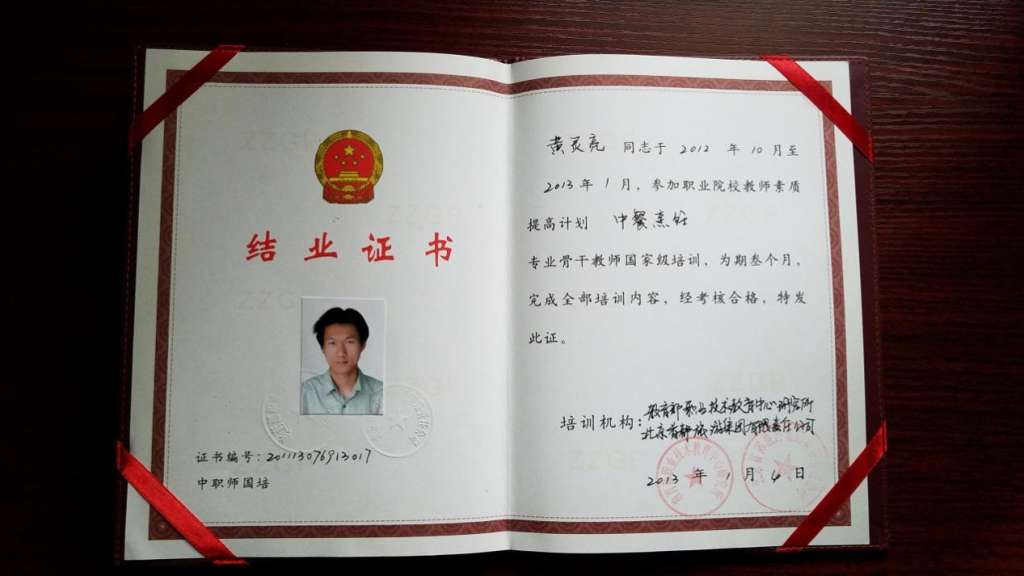 结业证书
证书编号:201113076913017
中职师国培
黄灵亮 同志于 2012 年 10 月至
2013 年 1 月，参加职业院校教师素质
提高计划 中餐烹饪
专业骨干教师国家级培训、为期叁个月，
完成全部培训内容，经考核合格，特发
此证。
培训机构:教育部职业技术教育中心研究所
北京首都旅游集团有限责任公司
2013 年 1 月 4 日